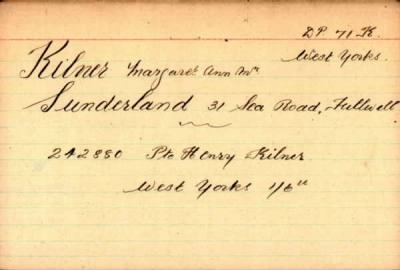 DP 71 K.
West Yorks.
Kilner Margaret Ann Mrs
Sunderland 31 Sea Road, Fullwell
242880 Pte Henry Kilner
West Yorks 1/6th